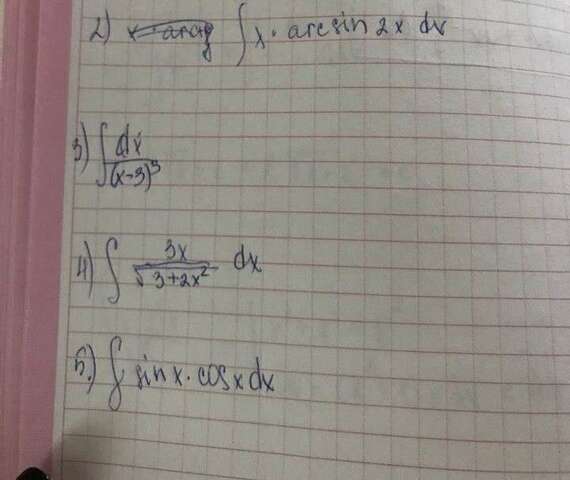 2) ∫ x · arcsin 2x dx
3) ∫ dx / (x-3)³
4) ∫ 3x / √(3+2x²) dx
5) ∫ sin x · cos x dx